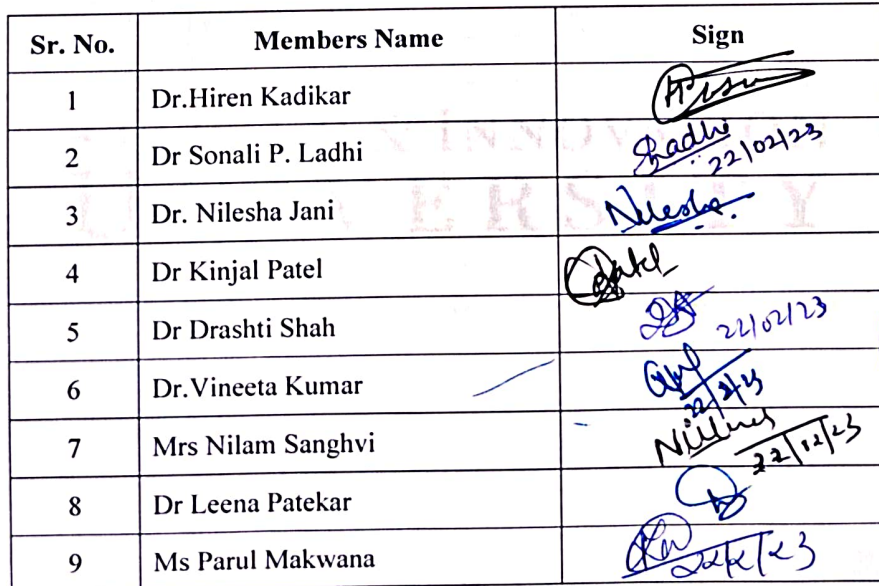 Sr. No. Members Name Sign
1 Dr.Hiren Kadikar
2 Dr Sonali P. Ladhi Sladhi 22/02/23
3 Dr. Nilesha Jani Nilesha
4 Dr Kinjal Patel Patel
5 Dr Drashti Shah 22/02/23
6 Dr.Vineeta Kumar 22/2/23
7 Mrs Nilam Sanghvi
8 Dr Leena Patekar
9 Ms Parul Makwana
INNOV
ERSITY